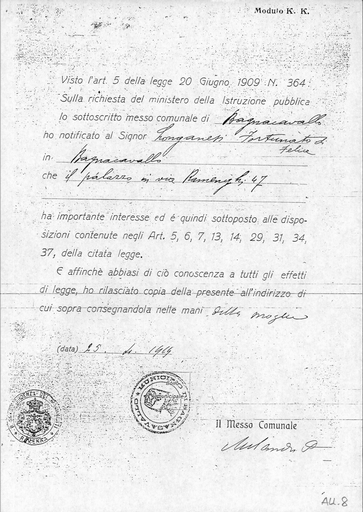 Modulo K. K.
Visto l'art. 5 della legge 20 Giugno 1909 N. 364
Sulla richiesta del ministero della Istruzione pubblica
Io sottoscritto messo comunale di Bagnacavallo
ho notificato al Signor Longanesi Fortunato di
Felice
in Bagnacavallo
che il palazzo in via Ramenghi, 47
ha importante interesse ed é quindi sottoposto alle dispo-
sizioni contenute negli Art. 5, 6, 7, 13, 14, 29, 31, 34,
37, della citata legge.
E affinchè abbiasi di ciò conoscenza a tutti gli effetti
di legge, ho rilasciato copia della presente all'indirizzo di
cui sopra consegnandola nelle mani della moglie
(data) 25. 4. 1914
MUNICIPIO DI BAGNACAVALLO
RAVENNA
Il Messo Comunale
ALL. 8